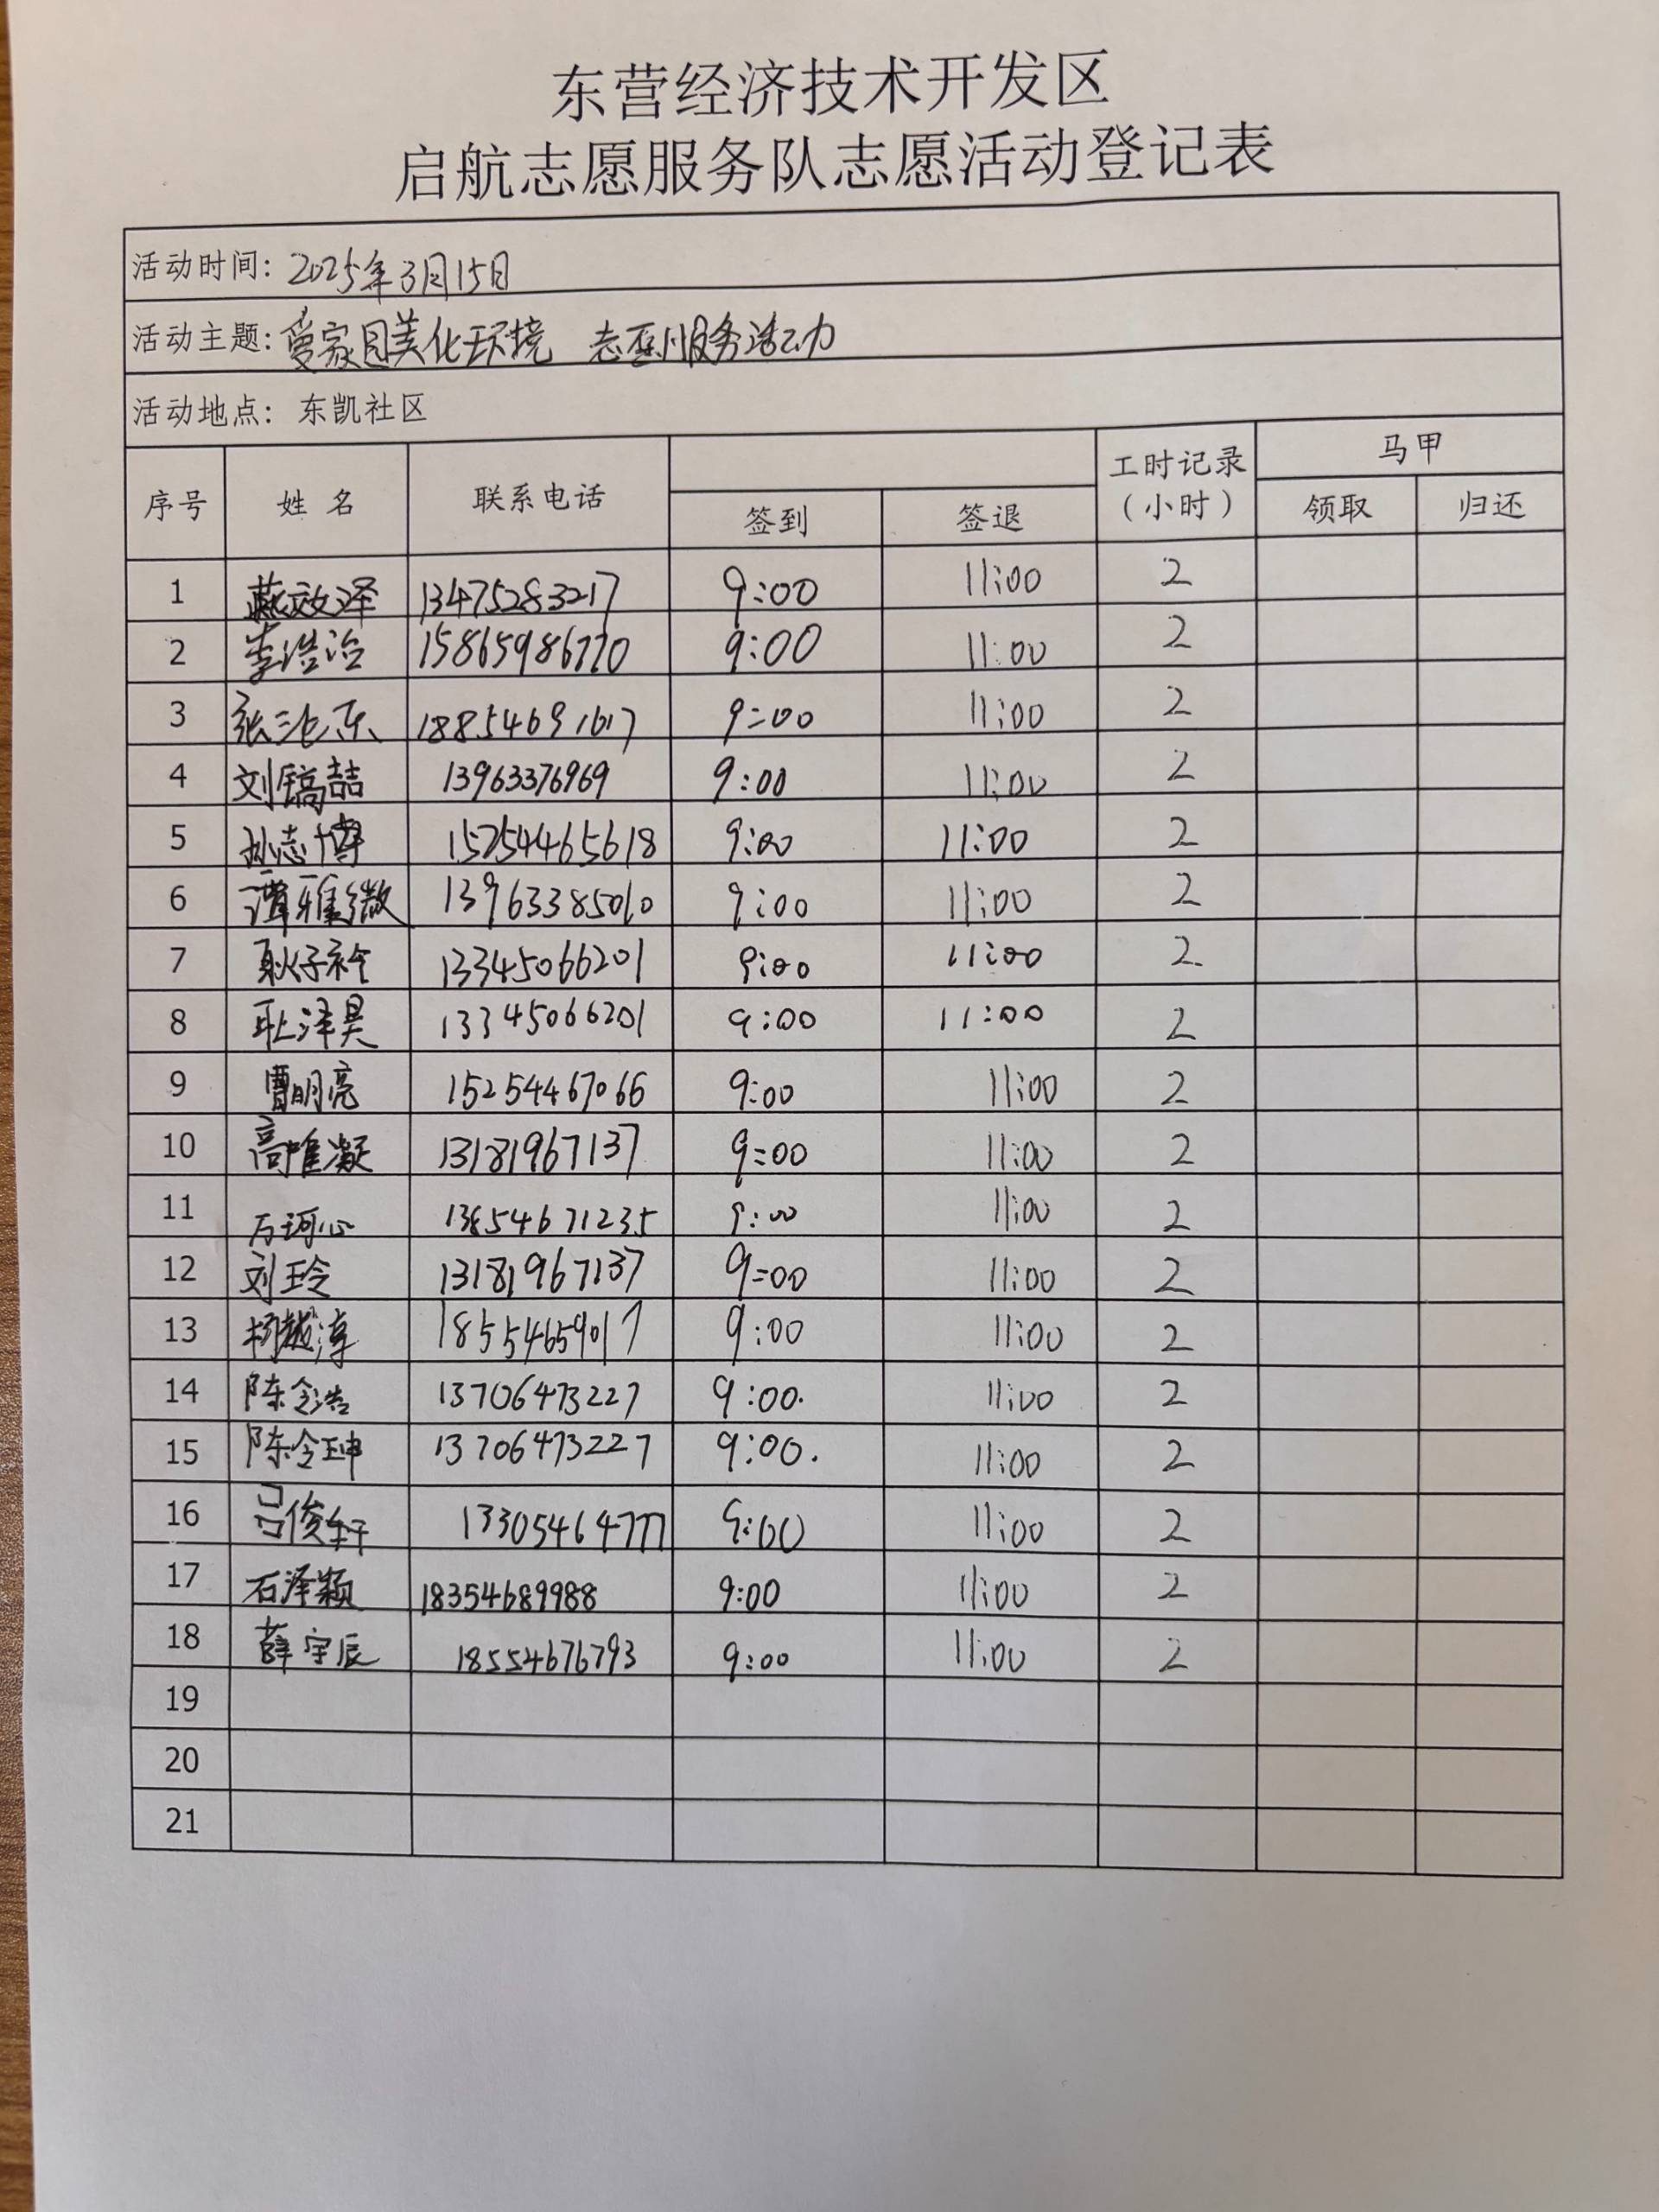 东营经济技术开发区
启航志愿服务队志愿活动登记表
活动时间: 2025年3月15日
活动主题: 爱家园美化环境 志愿服务活动
活动地点: 东凯社区
序号 姓 名 联系电话 签到 签退 工时记录(小时) 马甲 领取 归还
1 燕效泽 13475283217 9:00 11:00 2
2 李浩冶 15865986770 9:00 11:00 2
3 张沦东 18854691617 9:00 11:00 2
4 刘镐喆 13963376969 9:00 11:00 2
5 孙志博 15254465618 9:00 11:00 2
6 谭雅微 13963385010 9:00 11:00 2
7 耿子衿 13345066201 9:00 11:00 2
8 耿泽昊 13345066201 9:00 11:00 2
9 曹明亮 15254467066 9:00 11:00 2
10 高唯凝 13181967137 9:00 11:00 2
11 万珂心 13854671235 9:00 11:00 2
12 刘玲 13181967137 9:00 11:00 2
13 杨越淳 18554659017 9:00 11:00 2
14 陈令浩 13706473227 9:00. 11:00 2
15 陈令珅 13706473227 9:00. 11:00 2
16 吕俊轩 13305464777 9:00 11:00 2
17 石泽颖 18354689988 9:00 11:00 2
18 薛宇辰 18554676793 9:00 11:00 2
19
20
21